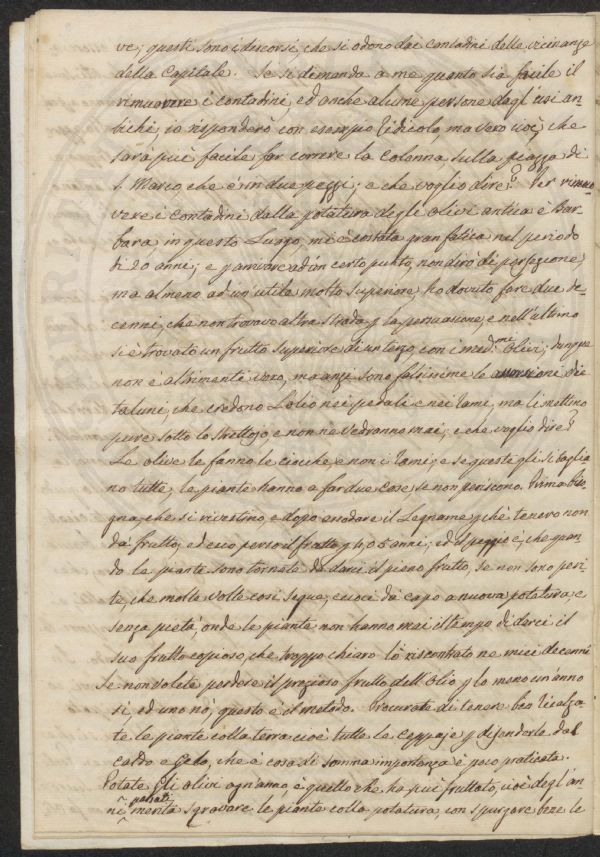 ve; questi sono i discorsi, che si odono dai contadini delle vicinanze
della Capitale. Se si dimanda a me quanto sia facile il
rimuovere i contadini, ed anche alcune persone dagl'usi an-
tichi, io risponderò con esempio ridicolo, ma vero cioè, che
sarà più facile far correre la Colonna sulla piazza di
S. Marco, che è in due pezzi; e che voglio dire? Per rimuo
vere i contadini dalla potatura degli Olivi antica è Bar-
bara in questo Luogo, mi è costata gran fatica nel periodo
di 20 anni; e p arrivare ad un certo punto, non dirò di perfezione,
ma almeno ad un'utile molto superiore, ho dovuto fare due de-
cenni, che non trovavo altra strada p la persuasione, e nell'ultimo
si è trovato un frutto superiore di un terzo, con i med.mi Olivi; dunque
non è altrimenti vero, ma anzi sono falsissime le asserzioni di
taluni, che credono l'olio nei pedali e nei rami, ma li mettino
pure sotto lo strettojo, e non ne vedranno mai; e che voglio dire?
Le olive le fanno le ciocche, e non i rami; e se queste gli si taglia
no tutte, le piante hanno a far due cose, se non periscono. Prima biso
gna, che si rivestino, e dopo assodare il Legname, p chè tenero non
da frutto, ed ecco perso il frutto p 4, o 5 anni; ed il peggio è, che quan-
do le piante sono tornate a darci il pieno frutto, se non sono peri-
te, che molte volte così segue, eccoci da capo a nuova potatura, e
senza pietà, onde le piante non hanno mai il tempo di darci il
suo frutto copioso, che troppo chiaro l'ò riscontrato ne miei decenni
Se non volete perdere il prezioso frutto dell'Olio p lo meno un'anno
si, ed uno nò, questo è il metodo. Procurate di tenere ben ricalza-
te le piante colla terra cioè tutte le ceppaje p difenderle dal
caldo e Gelo, che è cosa di somma importanza è poco praticata.
Potate gli olivi ogn'anno, è quello che ha più fruttato, cioè degl'an-
ni passati merita sgravare le piante colla potatura, con spurgare bene le